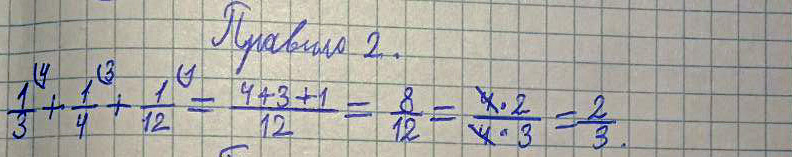 Правило 2.
1/3 (4 + 1/4 (3 + 1/12 (1 = 4+3+1/12 = 8/12 = 4·2/4·3 = 2/3.